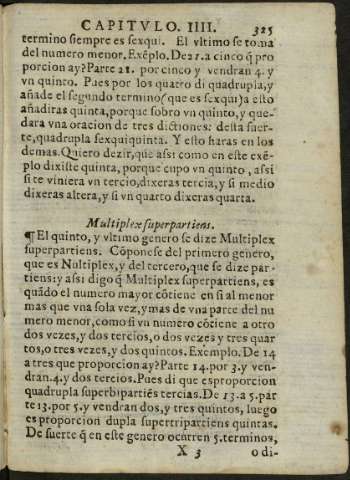 CAPITVLO. IIII. 325
termino siempre es sexqui. El vltimo se toma
del numero menor. Exẽplo. De 21. a cinco q̃ pro
porcion ay? Parte 21. por cinco y vendran 4. y
vn quinto. Pues por los quatro di quadrupla, y
añade el segundo termino (que es sexqui) a esto
añadiras quinta, porque sobro vn quinto, y que-
dara vna oracion de tres dictiones: desta suer-
te, quadrupla sexquiquinta. Y esto haras en los
demas. Quiero dezir, que assi como en este exẽ-
plo dixiste quinta, porque cupo vn quinto, assi
si te viniera vn tercio, dixeras tercia, y si medio
dixeras altera, y si vn quarto dixeras quarta.
Multiplex superpartiens.
¶ El quinto, y vltimo genero se dize Multiplex
superpartiens. Cõponese del primero genero,
que es Nultiplex, y del tercero, que se dize par-
tiens: y assi digo q̃ Multiplex superpartiens, es
quãdo el numero mayor cõtiene en si al menor
mas que vna sola vez, y mas de vna parte del nu
mero menor, como si vn numero cõtiene a otro
dos vezes, y dos tercios, o dos vezes y tres quar
tos, o tres vezes, y dos quintos. Exemplo. De 14
a tres que proporcion ay? Parte 14. por 3. y ven-
dran. 4. y dos tercios. Pues di que es proporcion
quadrupla superbipartiẽs tercias. De 13. a 5. par
te 13. por 5. y vendran dos, y tres quintos, luego
es proporcion dupla supertripartiens quintas.
De suerte q̃ en este genero ocurren 5. terminos,
X 3 o di-